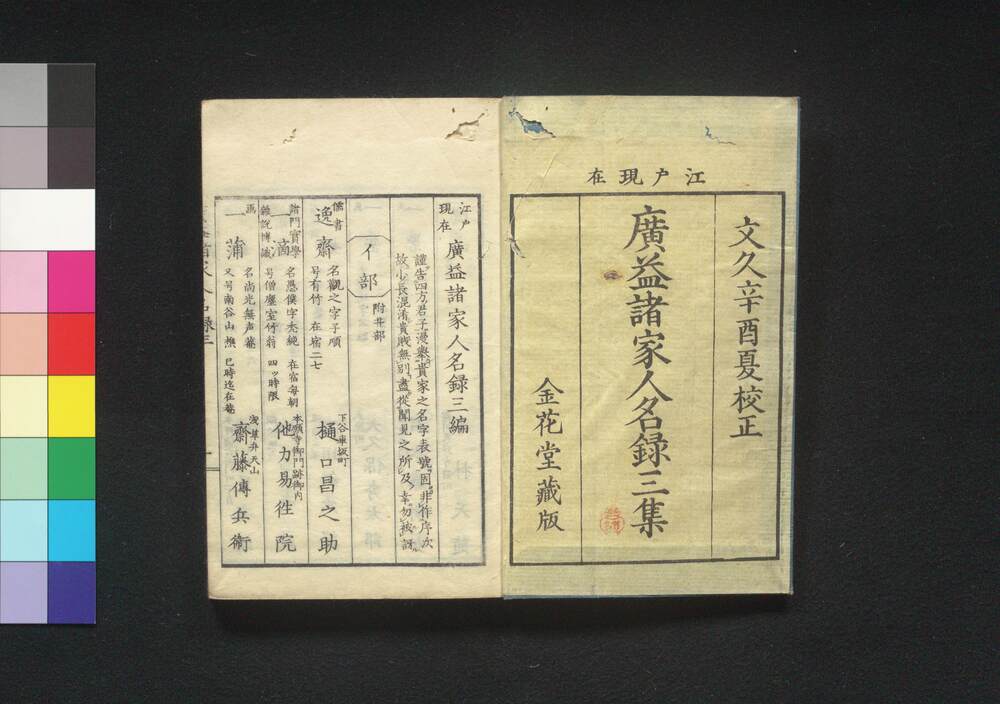 江戸現在
文久辛酉夏校正
廣益諸家人名録三集
金花堂藏版
江戸現在
廣益諸家人名録三編
謹告四方君子漫舉貴家之名字表號固非作序次
故少長混淆貴賎無別盡從聞見之所及幸勿被訝
イ部
附井部
儒書
逸齋
名觀之字子順
号有竹 在宿二七
下谷車坂町
樋口昌之助
諸門實學
雜説博識
一滴
名愚僕字禿純 在宿每朝
号僧塵室竹翁 四ッ時限
本願寺御門跡御内
他力易徃院
一蒲
名尚光無声菴
又号南谷山樵 巳時迄在菴
浅草弁天山
齋藤傳兵衛